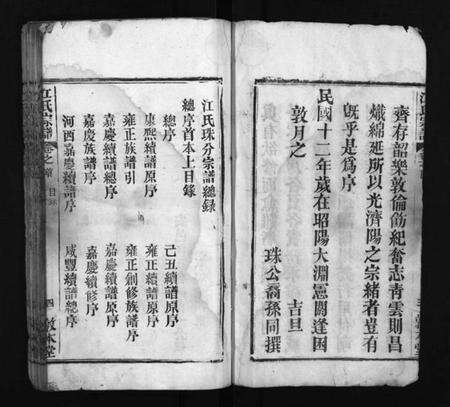 齊存韶樂敦倫飭紀奮志青雲則昌
熾綿延所以光濟陽之宗緒者豈有
既乎是爲序
民國十二年歲在昭陽大淵憲閼逢困
敦月之 吉旦
珠公裔孫同撰
江氏宗譜
江氏珠分宗譜總錄
總序首本上目錄
總序 己丑續譜原序
康熙續譜原序 雍正續譜原序
雍正族譜引 雍正創修族譜序
嘉慶續譜總序 嘉慶續譜原序
嘉慶族譜序 嘉慶續修序
河西嘉慶續譜序 咸豐續譜總序
江氏宗譜 卷之首 目錄 四 敦本堂